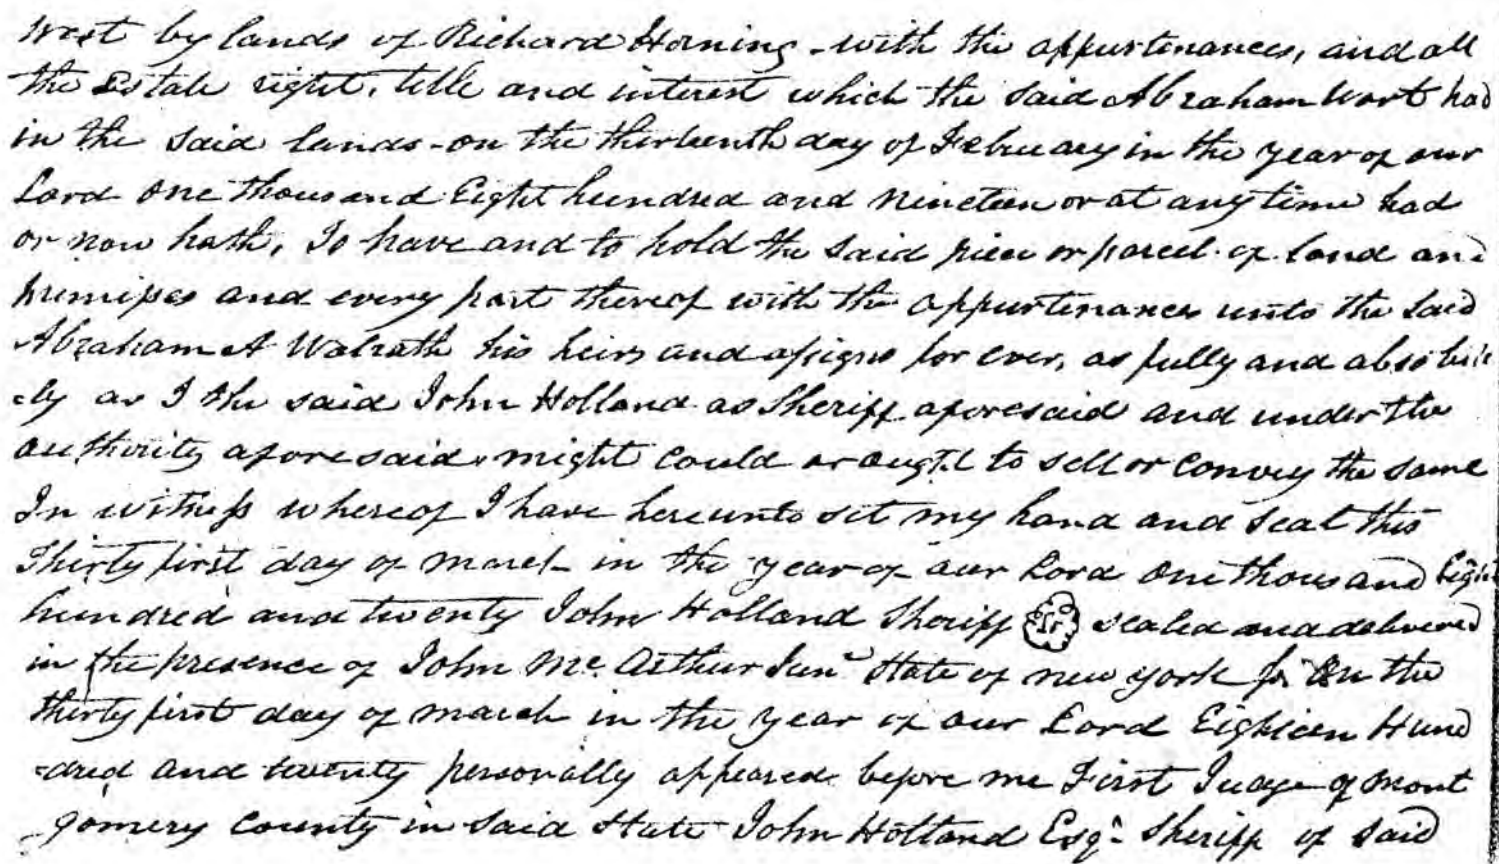 West by lands of Richard Horning - with the appurtenances, and all
the Estate right, title and interest which the said Abraham Wart had
in the said lands - on the thirteenth day of February in the year of our
Lord One thousand Eight hundred and Nineteen or at any time had
or now hath, To have and to hold the said piece or parcel of land and
premises and every part thereof with the appurtenances unto the Said
Abraham A Walrath his heirs and assigns for ever, as fully and absolute
-ly as I the said John Holland as Sheriff aforesaid and under the
authority aforesaid might could or ought to sell or convey the same
In witness whereof I have hereunto set my hand and Seal this
Thirty first day of march in the year of our Lord One thousand Eight
hundred and twenty John Holland Sheriff LS sealed and delivered
in the presence of John Mc. Arthur Junr State of new york ss On the
thirty first day of march in the year of our Lord Eighteen Hund
-dred and twenty personally appeared before me First Judge of Mont
-gomery County in Said State John Holland Esqr. Sheriff of Said